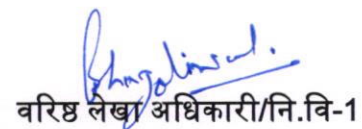 वरिष्ठ लेखा अधिकारी/नि.वि-1